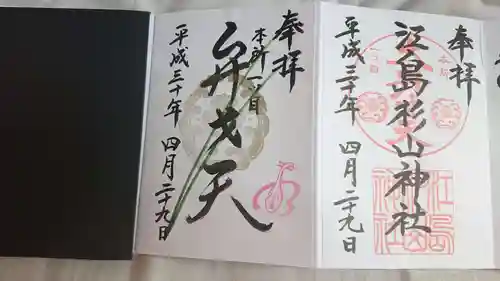 奉拝
江島杉山神社
平成三十年 四月二十九日
奉拝
本所一ツ目
弁才天
平成三十年 四月二十九日